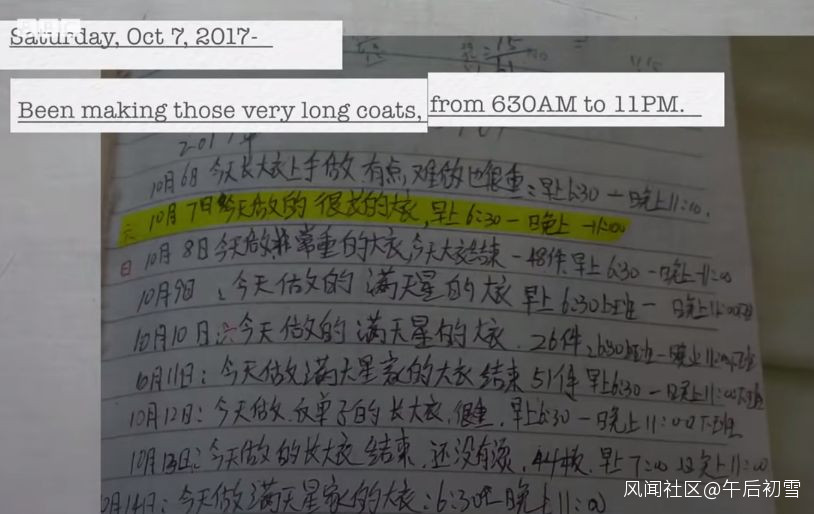 BBC
Saturday, Oct 7, 2017-
Been making those very long coats, from 630AM to 11PM.
10月6日 今天长大衣上手做 有点,难做也很重:早上6:30—晚上11:00.
六 10月7日 今天做的很长的大衣,早上6:30—晚上—11:00
日 10月8日今天做非常重的大衣,今天大衣结束—48件.早上6:30—晚上—11:00
10月9日:今天做的满天星的大衣 早上6:30上班—晚上11:00
10月10日:今天做的满天星的大衣.26件,6:30上班—晚上11:00下班
10月11日:今天做满天星家的大衣结束 51件 早上6:30—晚上11:00下班
10月12日:今天做 的长大衣,很重.早上6:30—晚上11:00下班
10月13日:今天做的长大衣结束.还没有滚,44 .早上7:00 晚上11:00
10月14日:今天做满天星家的大衣:6:30—晚上11:00
风闻社区@午后初雪